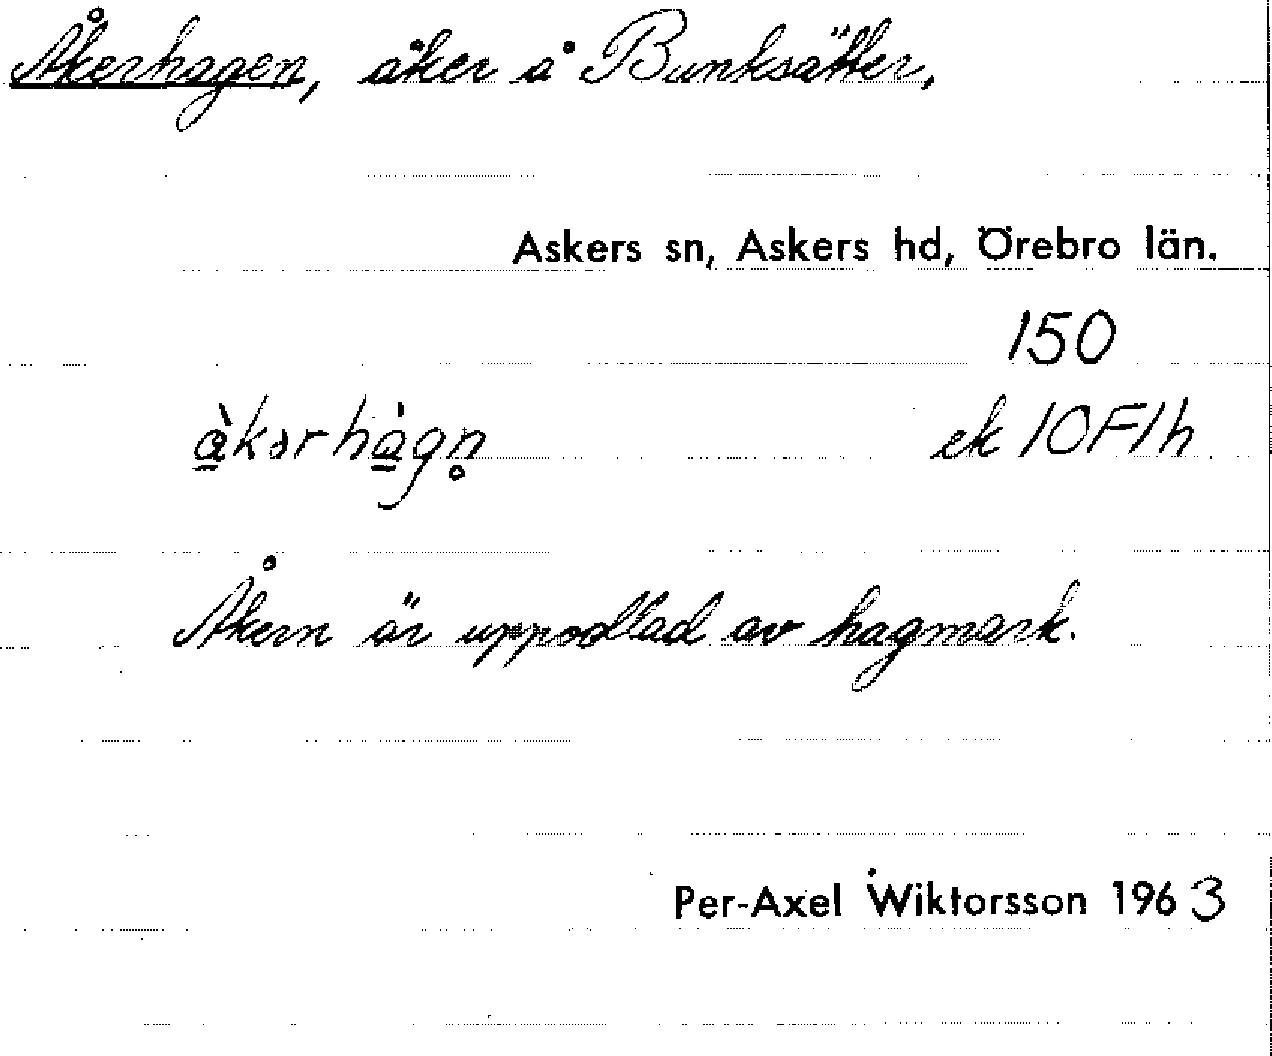 Åkerhagen, åker å Bunksätter,
Askers sn, Askers hd, Örebro län.
150
à̲kərhà̲gn̥ ek 10F1h
Åkern är uppodlad av hagmark.
Per-Axel Wiktorsson 1963